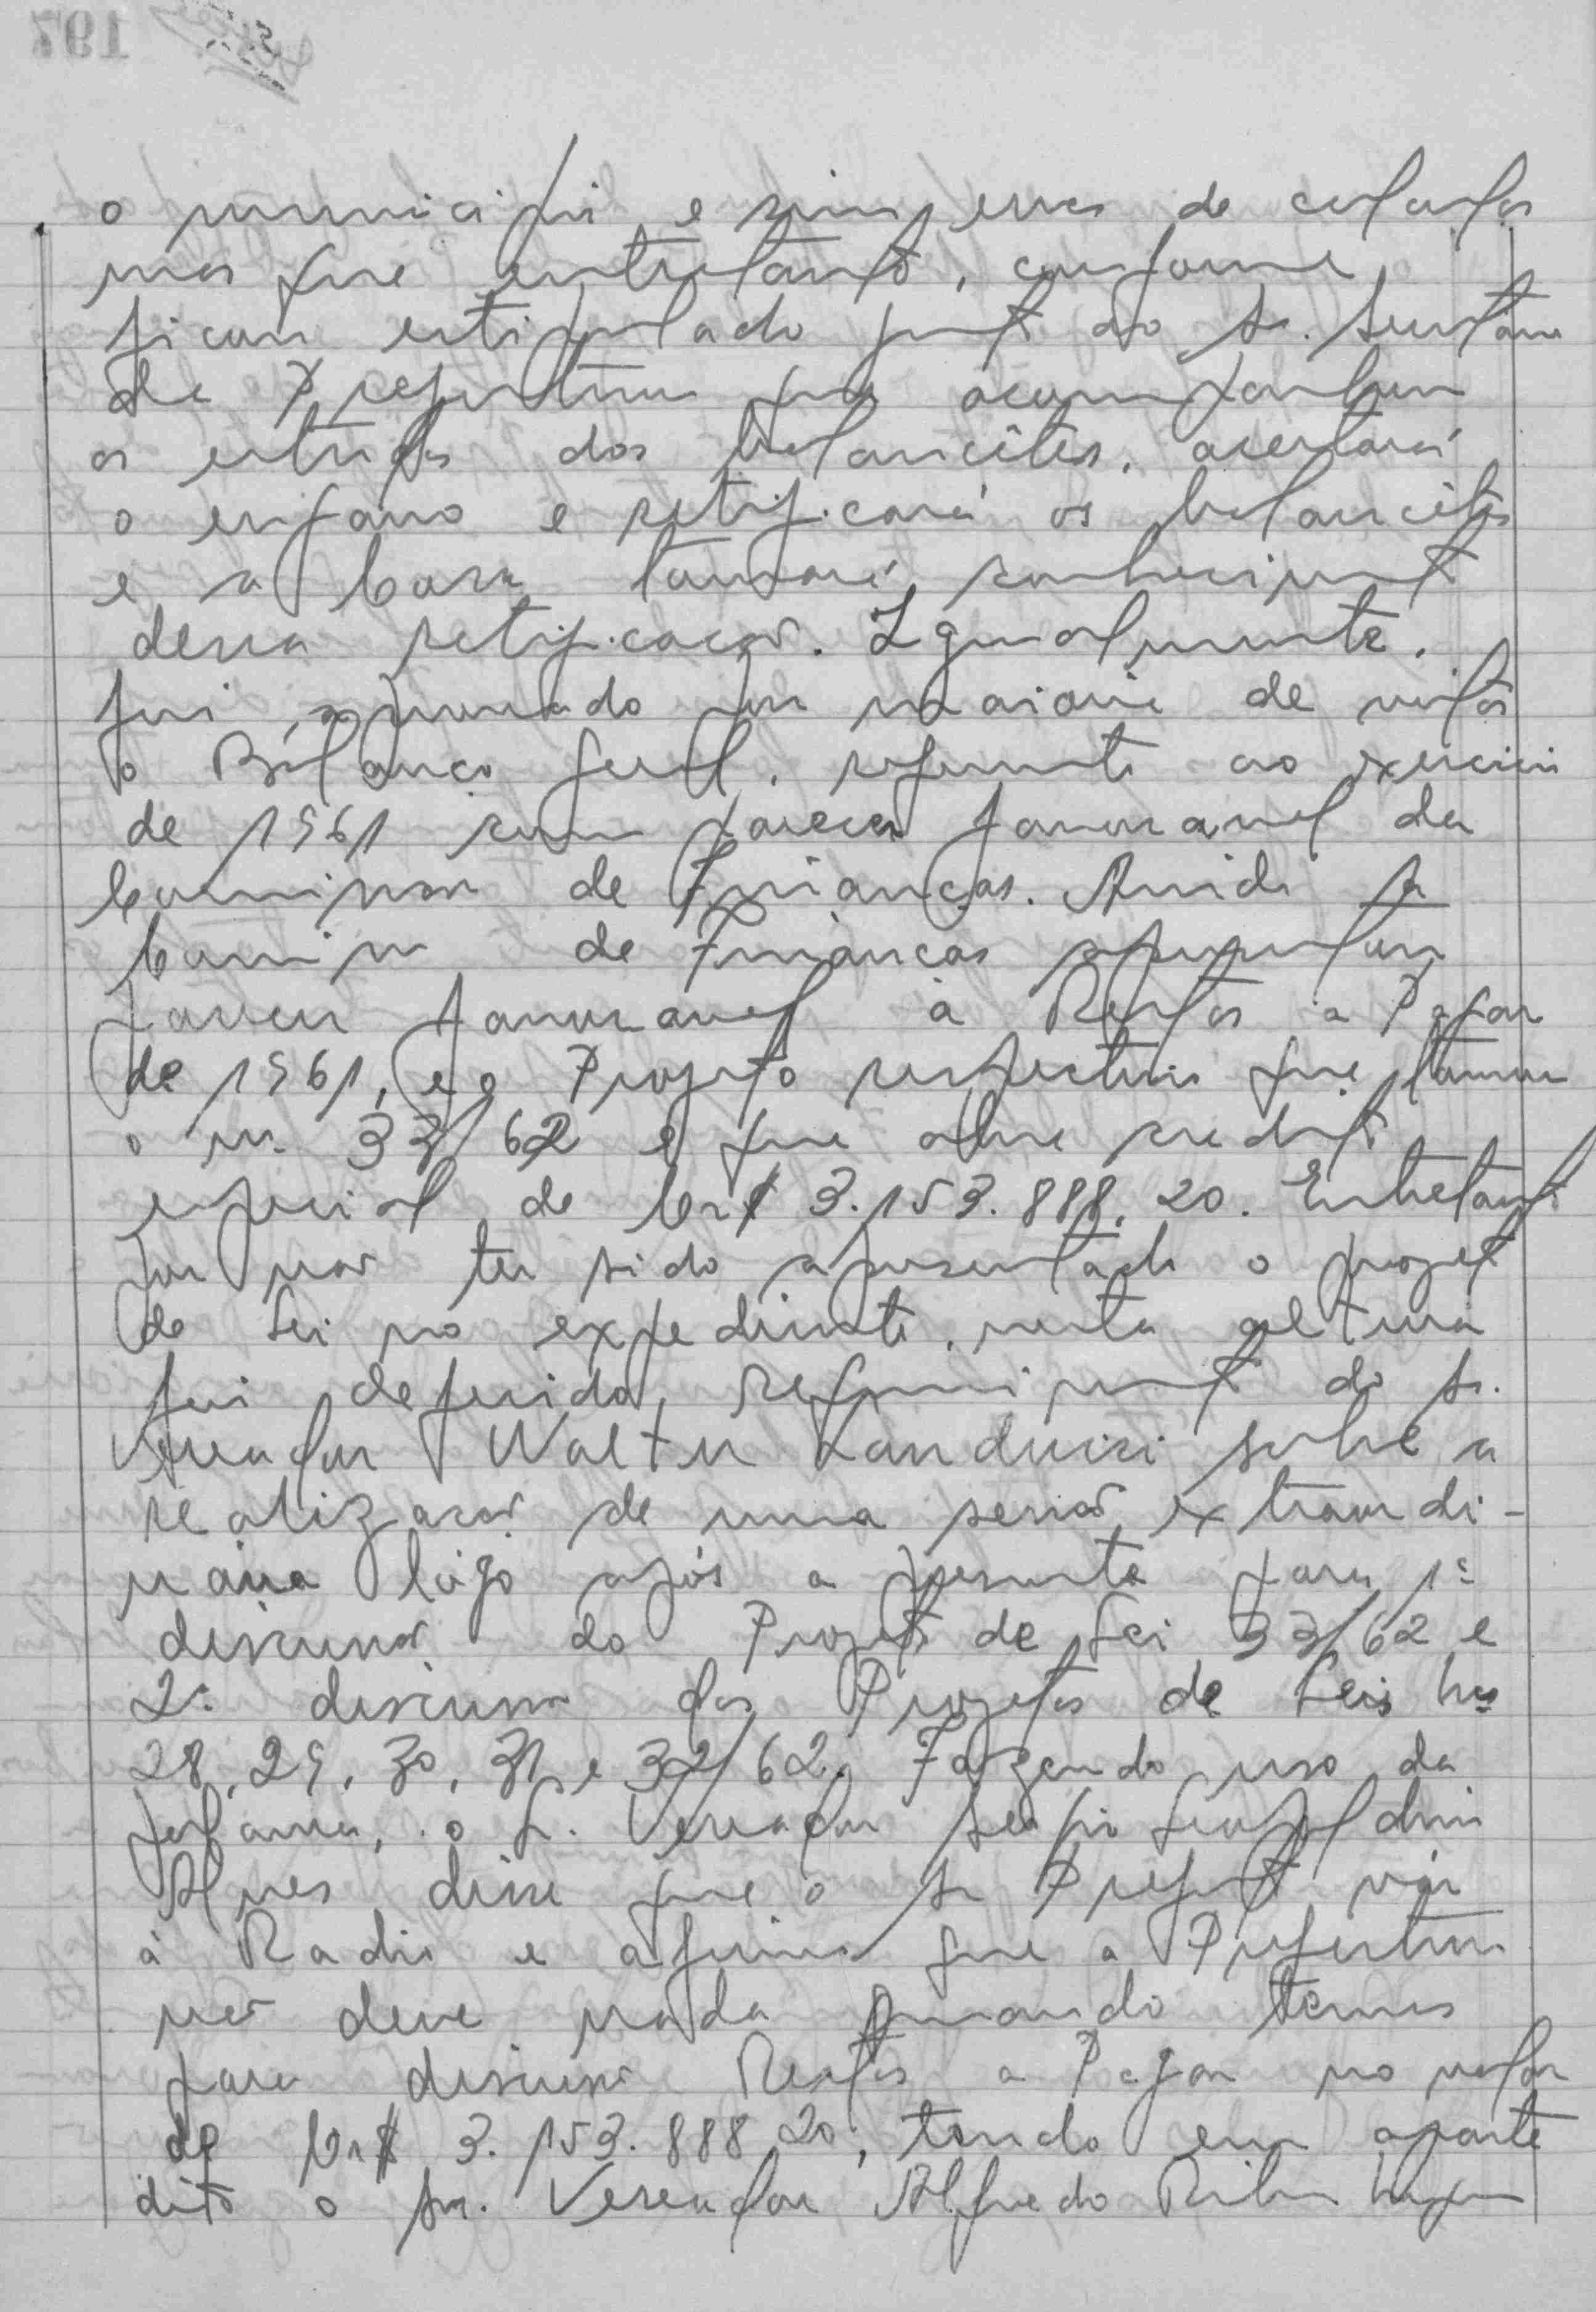 o municipio e sim erros de calculos
mas que entretanto, conforme
ficou estipulado junto ao Sr. Secretário
da Prefeitura que acompanhou
os estudos dos balancêtes, acertará
o engano e retificará os balancêtes
e a Casa tomará conhecimento
dessa retificação. Igualmente,
foi aprovado por maioria de votos
o Balanço Geral, referente ao exercicio
de 1961 com parecer favoravel da
Comissão de Finanças. Ainda a
Comissão de Finanças apresentou
parecer favoravel à Restos a Pagar
de 1961, e o Projeto respectivo que tomou
o nº 33/62 e que abre credito
especial de Cr$ 3.153.888,20. Entretanto
por não ter sido apresentado o projeto
de Lei no expediente, nesta altura
foi deferido Requerimento do Sr.
Vereador Walter sobre a
realização de uma sessão extraordi-
nária lógo após a presente para 1ª
discussão do Projeto de Lei 33/62 e
2ª discussão dos Projetos de Leis nºs
28, 29, 30, 31 e 32/62. Fazendo uso da
palavra, o Sr. Vereador Sergio
Alves disse que o Sr Prefeito vai
à Radio e afirma que a Prefeitura
não deve nada quando temos
para discussão Restos a Pagar no valor
de Cr$ 3.153.888,20, tendo em aparte
dito o Snr. Vereador Alfredo